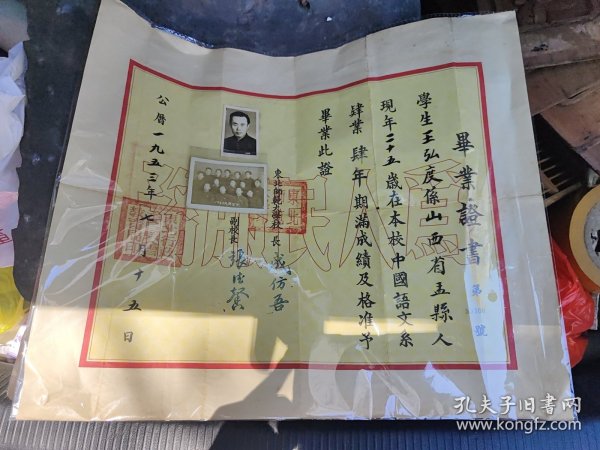 畢業證書
第 號
學生王弘度係山西省盂縣人
現年二十五歲在本校中國語文系
肄業 肆年期滿成績及格准予
畢業此證
東北師範大學校長 成仿吾
副校長 張德馨
公曆一九五三年七月十五日
為人民服務
孔夫子旧书网
www.kongfz.com